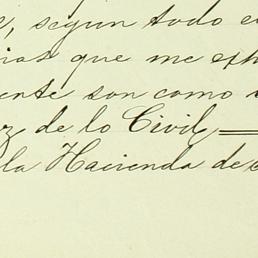 , segun todo e
ias que me exh
ente son como
z de lo Civil
la Hacienda de